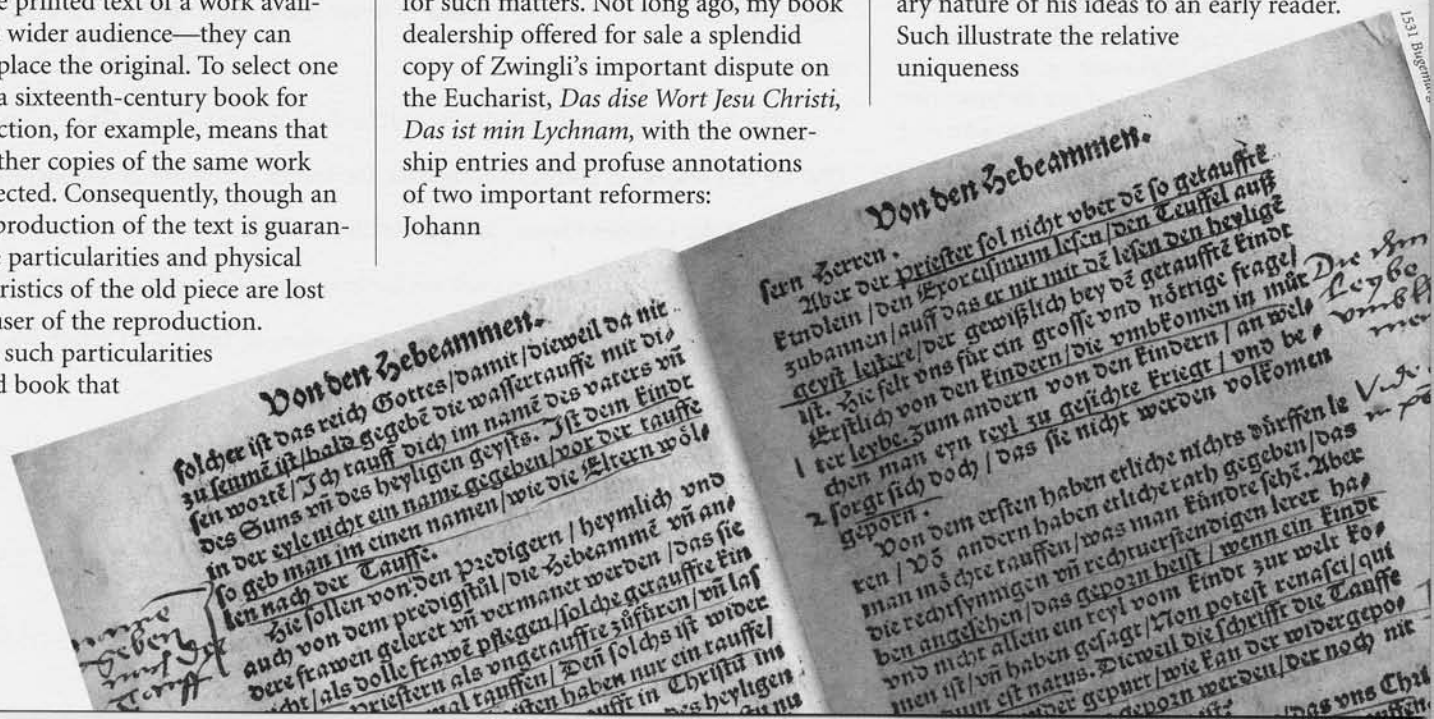 e printed text of a work avail-
wider audience—they can
place the original. To select one
a sixteenth-century book for
ction, for example, means that
ther copies of the same work
ected. Consequently, though an
production of the text is guaran-
e particularities and physical
ristics of the old piece are lost
user of the reproduction.
such particularities
d book that
for such matters. Not long ago, my book
dealership offered for sale a splendid
copy of Zwingli’s important dispute on
the Eucharist, Das dise Wort Jesu Christi,
Das ist min Lychnam, with the owner-
ship entries and profuse annotations
of two important reformers:
Johann
ary nature of his ideas to an early reader.
Such illustrate the relative
uniqueness
1531 Bugenhag
Von den Hebeammen.
solcher ist das reich Gottes/damit/dieweil da nit
zu seumē ist/bald gegebē die wassertauffe mit di⸗
sen wortē/Ich tauff dich im namē des vaters vñ
des Suns vñ des heyligen geysts. Ist dem kindt
in der eyle nicht ein name gegeben/vor der tauffe
so geb man im einen namen/wie die Eltern wöl⸗
len nach der Tauffe.
Hie sollen von den predigern/heymlich vnd
auch von dem predigstůl/die Hebeammē vñ an⸗
dere frawen geleret vñ vermanet werden/das sie
nicht/als dolle frawē pflegen/solche getauffte kin
priestern als vngetauffte zůfüren/vñ las
mal tauffen/Deñ solchs ist wider
isten haben nur ein tauffe/
aufft in Christū ins
es heyligen
Von den Hebeammen.
sern Herren.
Aber der priester sol nicht vber dē so getaufftē
kindlein/den Exorcismum lesen/den Teuffel auß
zubannen/auff das er nit mit dē lesen den heyligē
geyst lestere/der gewißlich bey dē getaufftē kindt
ist. Hie felt vns für ein grosse vnd nöttige frage/
Erstlich von den kindern/die vmbkomen in můt
1 ter leybe. Zum andern von den kindern/an wel⸗
chen man eyn teyl zu gesichte kriegt/vnd be⸗
2 sorgt sich doch/das sie nicht werden volkomen
geporn.
Von dem ersten haben etliche nichts dürffen le
ren/Vō andern haben etliche rath gegeben/das
man möchte tauffen/was man kündte sehē. Aber
die rechtsynnigen vñ rechtuerstendigen lerer ha⸗
ben angesehen/das geporn heist/wenn ein kindt
vnd nicht allein ein teyl vom kindt zur welt ko⸗
men ist/vñ haben gesagt/Non potest renasci/qui
est natus. Dieweil die schrifft die Tauffe
der gepurt/wie kan der widergepo⸗
geporn werden/der noch nit
das vns Chri
Die ihm
Leybe
vmbk